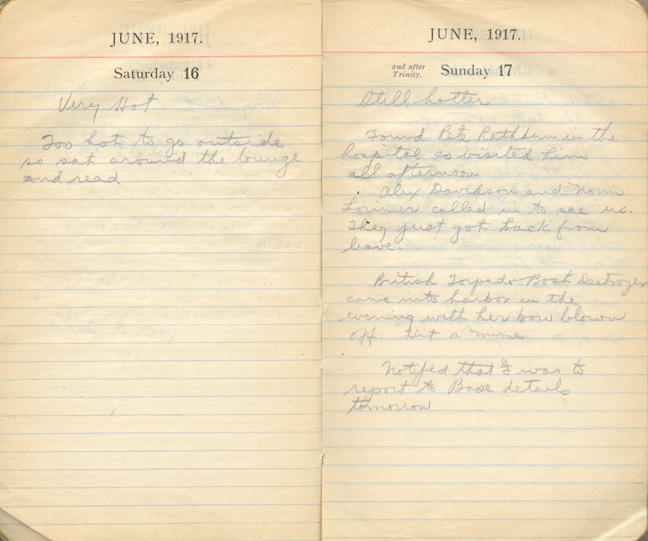 JUNE, 1917.
Saturday 16
Very Hot
Too hot to go outside
so sat around the lounge
and read
JUNE, 1917.
2nd after
Trinity.
Sunday 17
Still hotter.
Found Pete in the
hospital so visited him
all afternoon
Alex Davidson and Norm
Lorimer called in to see us.
They just got back from
leave.
British Torpedo Boat Destroyer
came into harbor in the
evening with her bow blown
off. Hit a mine
Notified that I was to
report to Base details
tomorrow